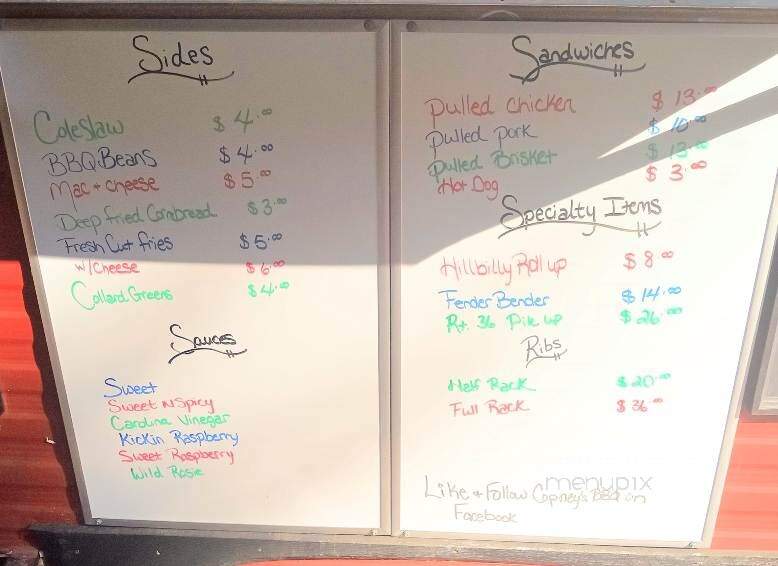 Sides
Coleslaw $4.00
BBQ Beans $4.00
Mac + cheese $5.00
Deep fried Cornbread $3.00
Fresh Cut fries $5.00
w/cheese $6.00
Collard Greens $4.00
Sauces
Sweet
Sweet N Spicy
Carolina Vinegar
Kickin Raspberry
Sweet Raspberry
Wild Rosie
Sandwiches
Pulled chicken $13.00
Pulled pork $10.00
Pulled Brisket $13.00
Hot Dog $3.00
Specialty Items
Hillbilly Roll up $8.00
Fender Bender $14.00
Rt. 36 Pile up $26.00
Ribs
Half Rack $20.00
Full Rack $36.00
Like + Follow Copney's BBQ on
Facebook
menupix